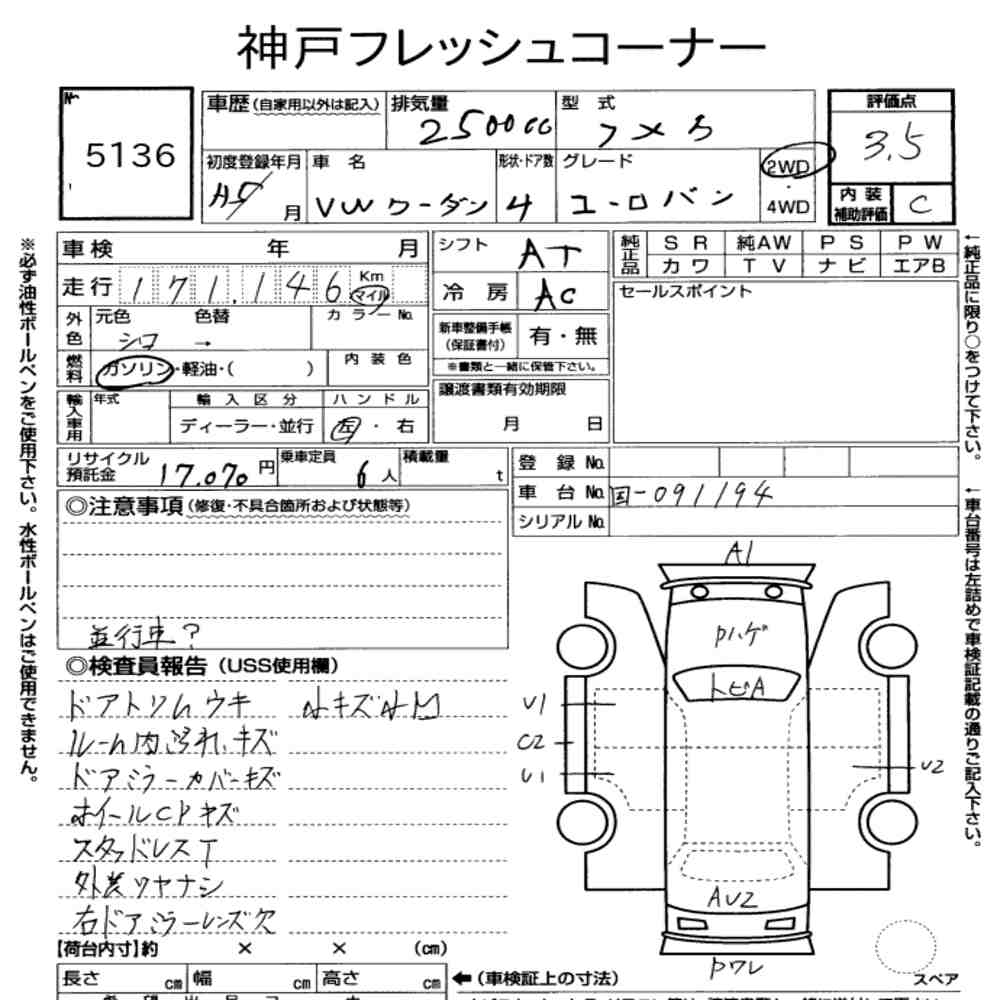 神戸フレッシュコーナー
No 5136
車歴(自家用以外は記入) 排気量 2500cc 型式 フメイ 評価点 3.5
初度登録年月 H5 月 車名 VWワーゲン 形状・ドア数 4 グレード ユーロバン 2WD・4WD 内装補助評価 C
車検 年 月 シフト AT 純正品 SR 純AW PS PW
カワ TV ナビ エアB
走行 171,146 Km マイル 冷房 AC セールスポイント
外色 元色 シロ 色替 → カラーNo. 新車整備手帳(保証書付) 有・無
※書類と一緒に保管下さい。
燃料 ガソリン・軽油・( ) 内装色 譲渡書類有効期限 月 日
輸入車用 年式 輸入区分 ディーラー・並行 ハンドル 左・右
リサイクル預託金 17.070円 乗車定員 6人 積載量 t 登録No.
車台No. 国-091194
シリアルNo.
◎注意事項(修復・不具合箇所および状態等)
並行車?
◎検査員報告(USS使用欄)
ドアトリムウキ 小キズ小凹
ルーム内汚れ、キズ
ドアミラーカバーキズ
ホイールCPキズ
スタッドレスT
外装ツヤナシ
右ドアミラーレンズ欠
A1
Pハゲ
トビA
U1
C2
U1
U2
AU2
Pワレ
スペア
【荷台内寸】約 × × (cm)
長さ cm 幅 cm 高さ cm ←(車検証上の寸法)
※必ず油性ボールペンをご使用下さい。水性ボールペンはご使用できません。
←純正品に限り○をつけて下さい。
←車台番号は左詰めで車検証記載の通りご記入下さい。